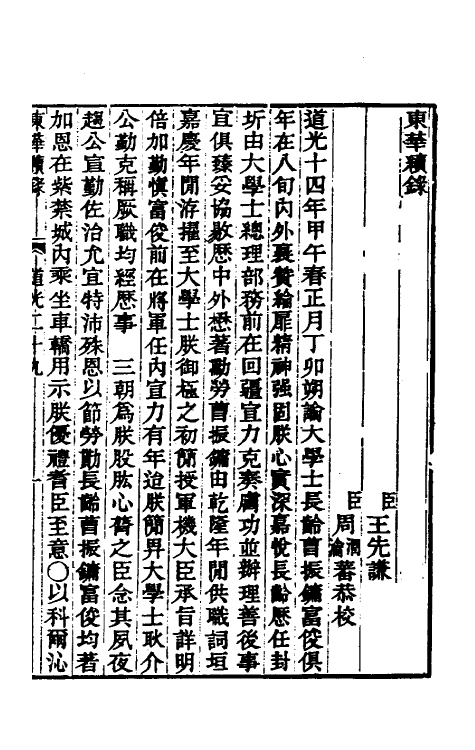 東華續錄
臣王先謙
臣周潤蕃瀹蕃恭校
道光十四年甲午春正月丁卯朔諭大學士長齡曹振鏞富俊俱
年在八旬內外襄贊綸扉精神强固朕心實深嘉悅長齡歷任封
圻由大學士總理部務前在回疆宣力克奏膚功並辦理善後事
宜俱臻妥協敭歷中外懋著勤勞曹振鏞由乾隆年閒供職詞垣
嘉慶年閒洊擢至大學士朕御極之初簡授軍機大臣承旨詳明
倍加勤愼富俊前在將軍任內宣力有年迨朕簡畀大學士耿介
公勤克稱厥職均經歷事 三朝爲朕股肱心膂之臣念其夙夜
趨公宣勤佐治允宜特沛殊恩以節勞勩長齡曹振鏞富俊均著
加恩在紫禁城內乘坐車轎用示朕優禮耆臣至意〇以科爾沁
東華續錄 道光二十九 一